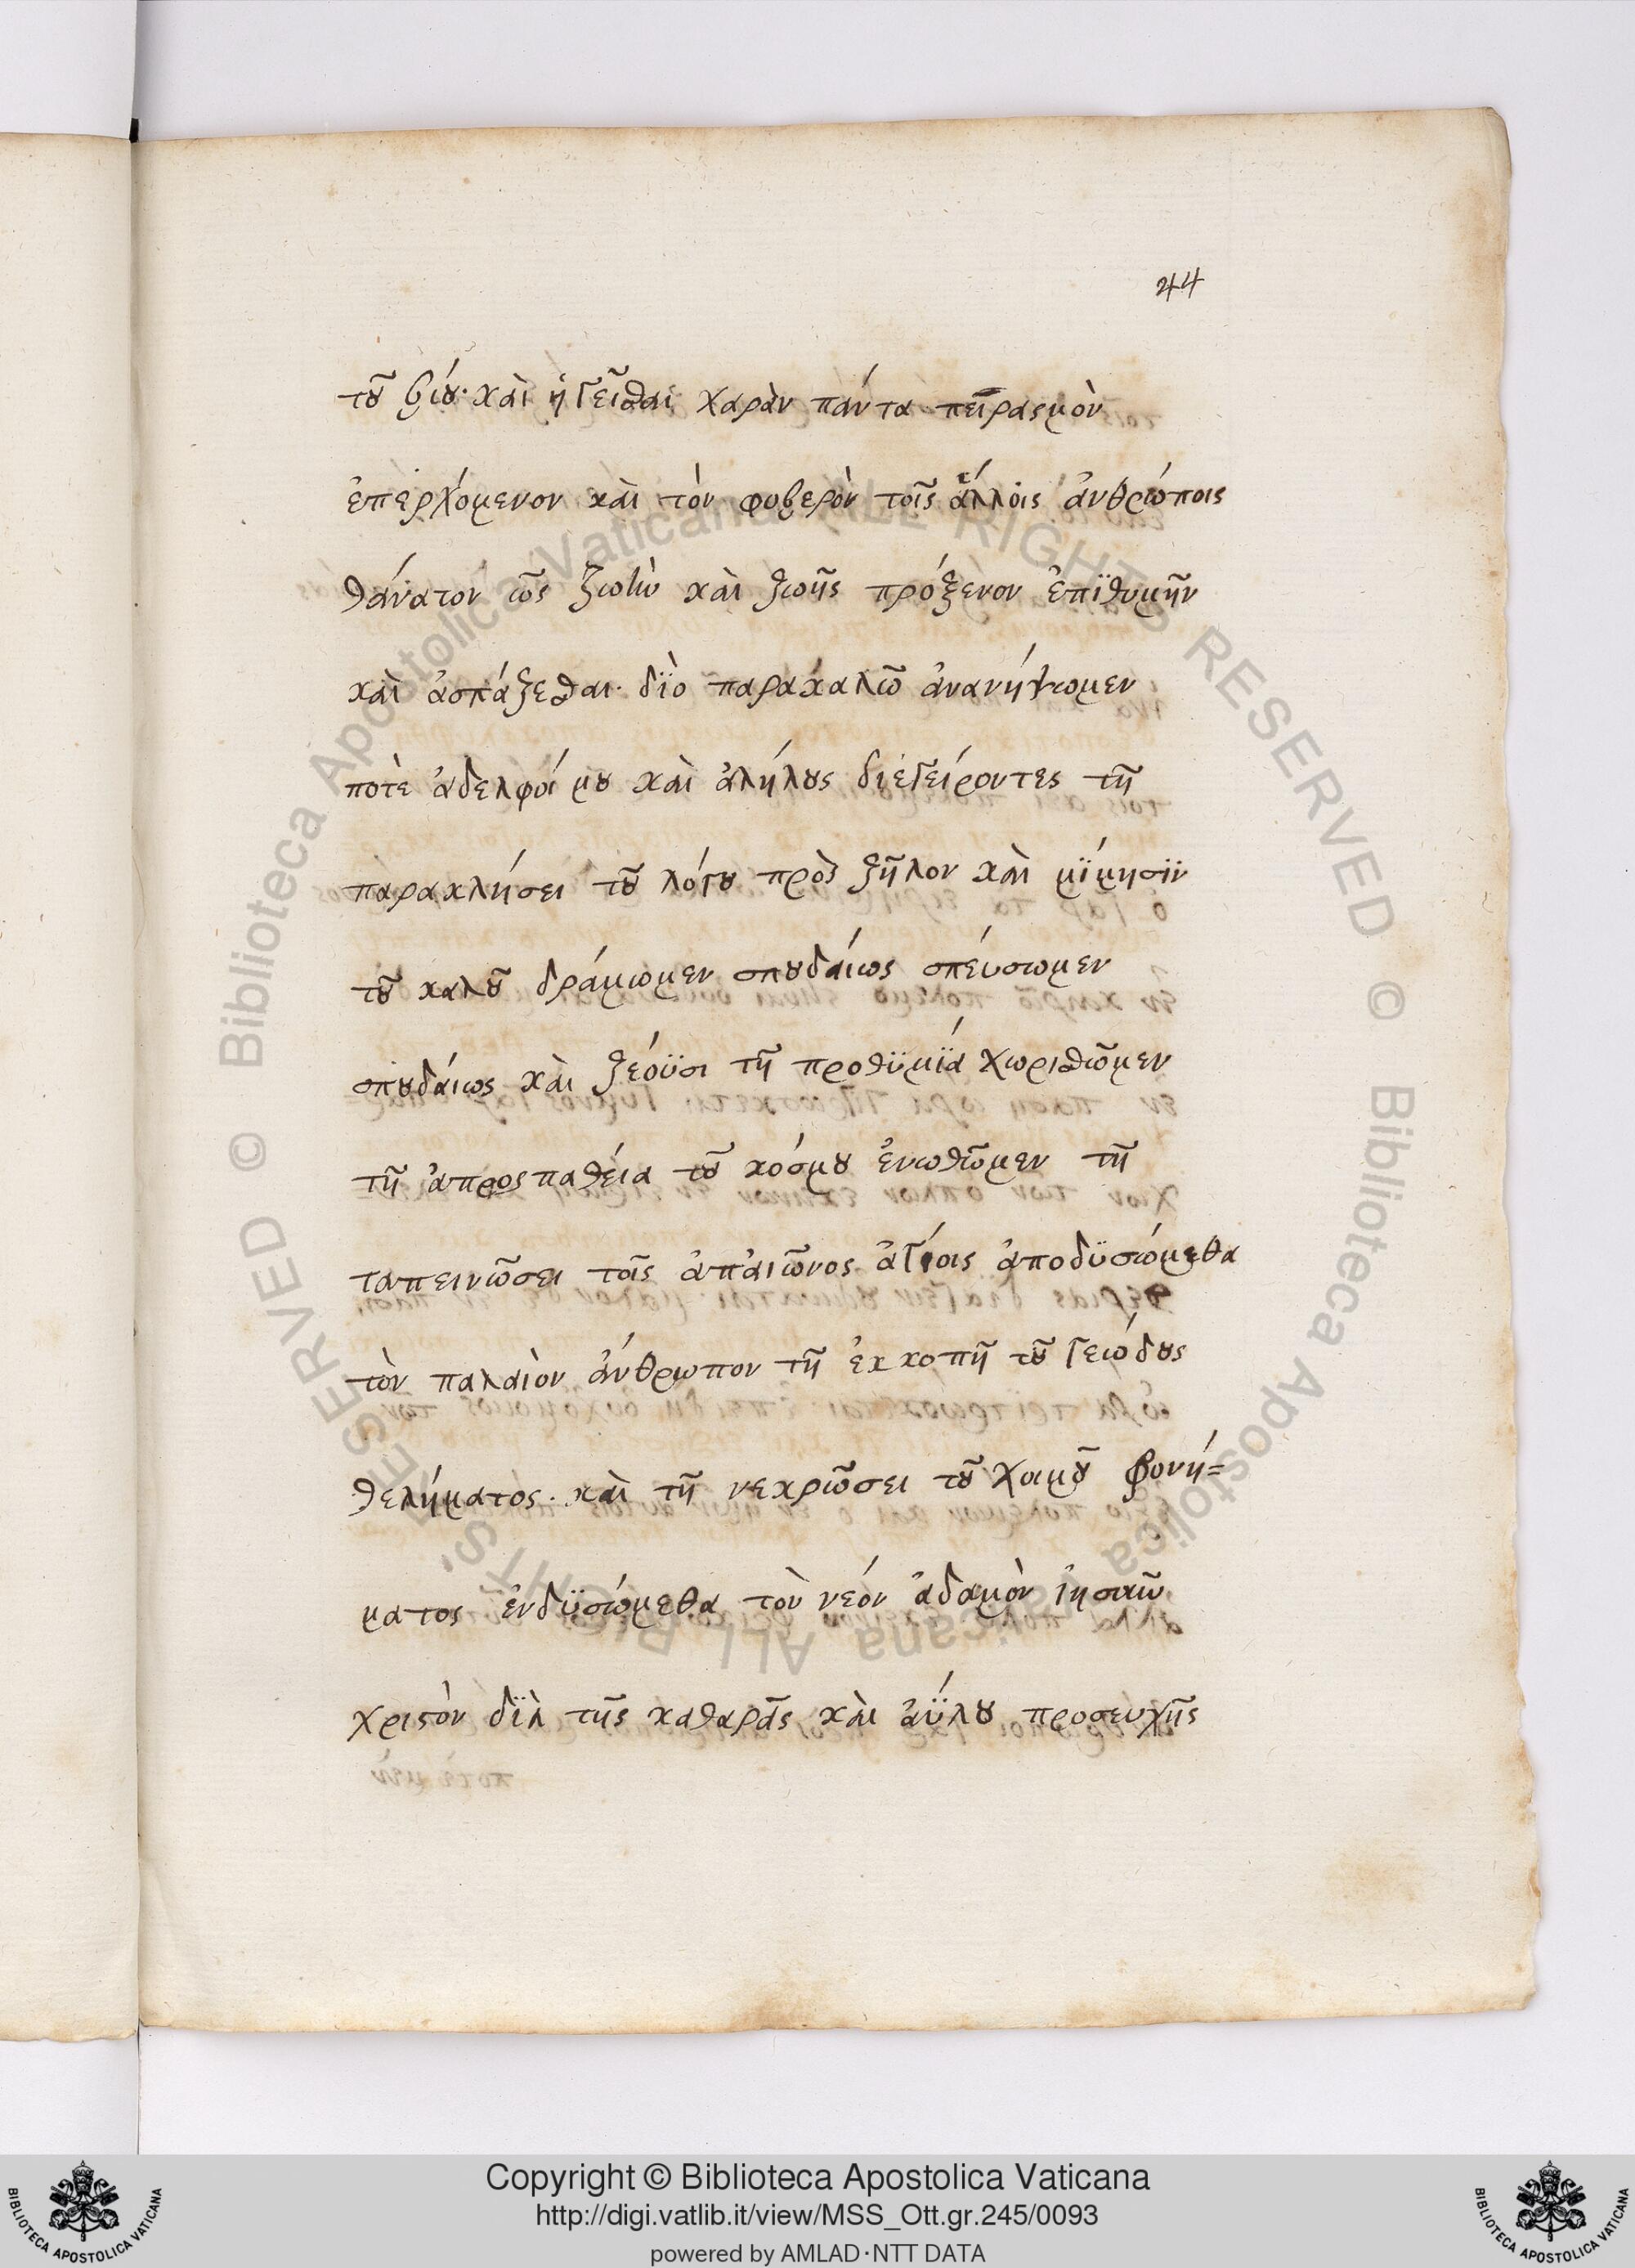 44
τοῦ βίου· καὶ ἡγεῖσθαι χαρὰν πάντα πειρασμὸν
ἐπερχόμενον καὶ τὸν φοβερὸν τοῖς ἄλλοις ἀνθρώποις
θάνατον ὡς ζωὴν καὶ ζωῆς πρόξενον ἐπϊθυμῆν
καὶ ἀσπάζεσθαι· δϊὸ παρακαλῶ ἀνανήψωμεν
ποτὲ ἀδελφοί μου καὶ ἀλήλους διεγείροντες τῆ
παρακλήσει τοῦ λόγου πρὸς ζῆλον καὶ μϊμησϊν
τοῦ καλοῦ δράμωμεν σπουδαίως σπεύσωμεν
σπουδαίως καὶ ζεόϋσι τῆ προθϋμϊά χωρισθῶμεν
τῆ ἀπροςπαθεία τοῦ κόσμου ἐνωθῶμεν τῆ
ταπεινῶσει τοῖς ἀπαιῶνος ἁγίοις ἀποδϋσώμεθα
τὸν παλαιὸν ἄνθρωπον τῆ ἐκκοπῆ τοῦ γεώδους
θελήματος· καὶ τῆ νεκρῶσει τοῦ χοιμοῦ φονή=
ματος ἐνδϋσώμεθα τὸν νεόν ἀδαμὸν
χριστὸν δϊὰ τῆς καθαρᾶς καὶ ἀϋλου προσευχῆς
Biblioteca Apostolica Vaticana ALL RIGHTS RESERVED ©
Biblioteca Apostolica Vaticana ALL RIGHTS RESERVED ©
Copyright © Biblioteca Apostolica Vaticana
http://digi.vatlib.it/view/MSS_Ott.gr.245/0093
powered by AMLAD·NTT DATA
BIBLIOTECA APOSTOLICA VATICANA
BIBLIOTECA APOSTOLICA VATICANA